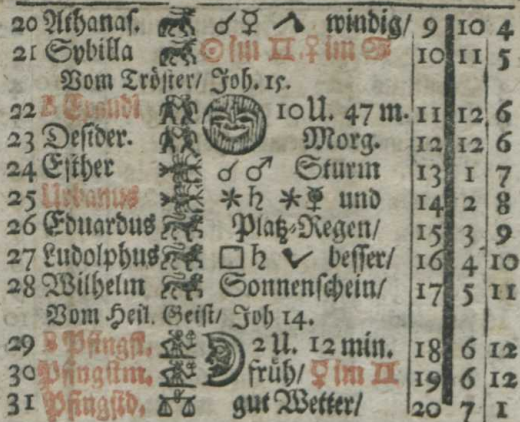 20 Athanaſ. ☌ ♀ windig/ 9 10 4
21 Sybilla ☉ im II. ♀ im ♋ 10 11 5
Vom Tröſter/ Joh. 15.
22 Exaudi 10 U. 47 m. 11 12 6
23 Deſider. Morg. 12 12 6
24 Eſther ☌ ♂ Sturm 13 1 7
25 Urbanus ⚹ ♄ ⚹ ☿ und 14 2 8
26 Eduardus Platz⸗Regen/ 15 3 9
27 Ludolphus □ ♄ beſſer/ 16 4 10
28 Wilhelm Sonnenſchein/ 17 5 11
Vom Heil. Geiſt/ Joh 14.
29 Pfingſt. 2 U. 12 min. 18 6 12
30 Pfingſtm. früh/ ♀ im II 19 6 12
31 Pfingſtd. ♎ gut Wetter/ 20 7 1